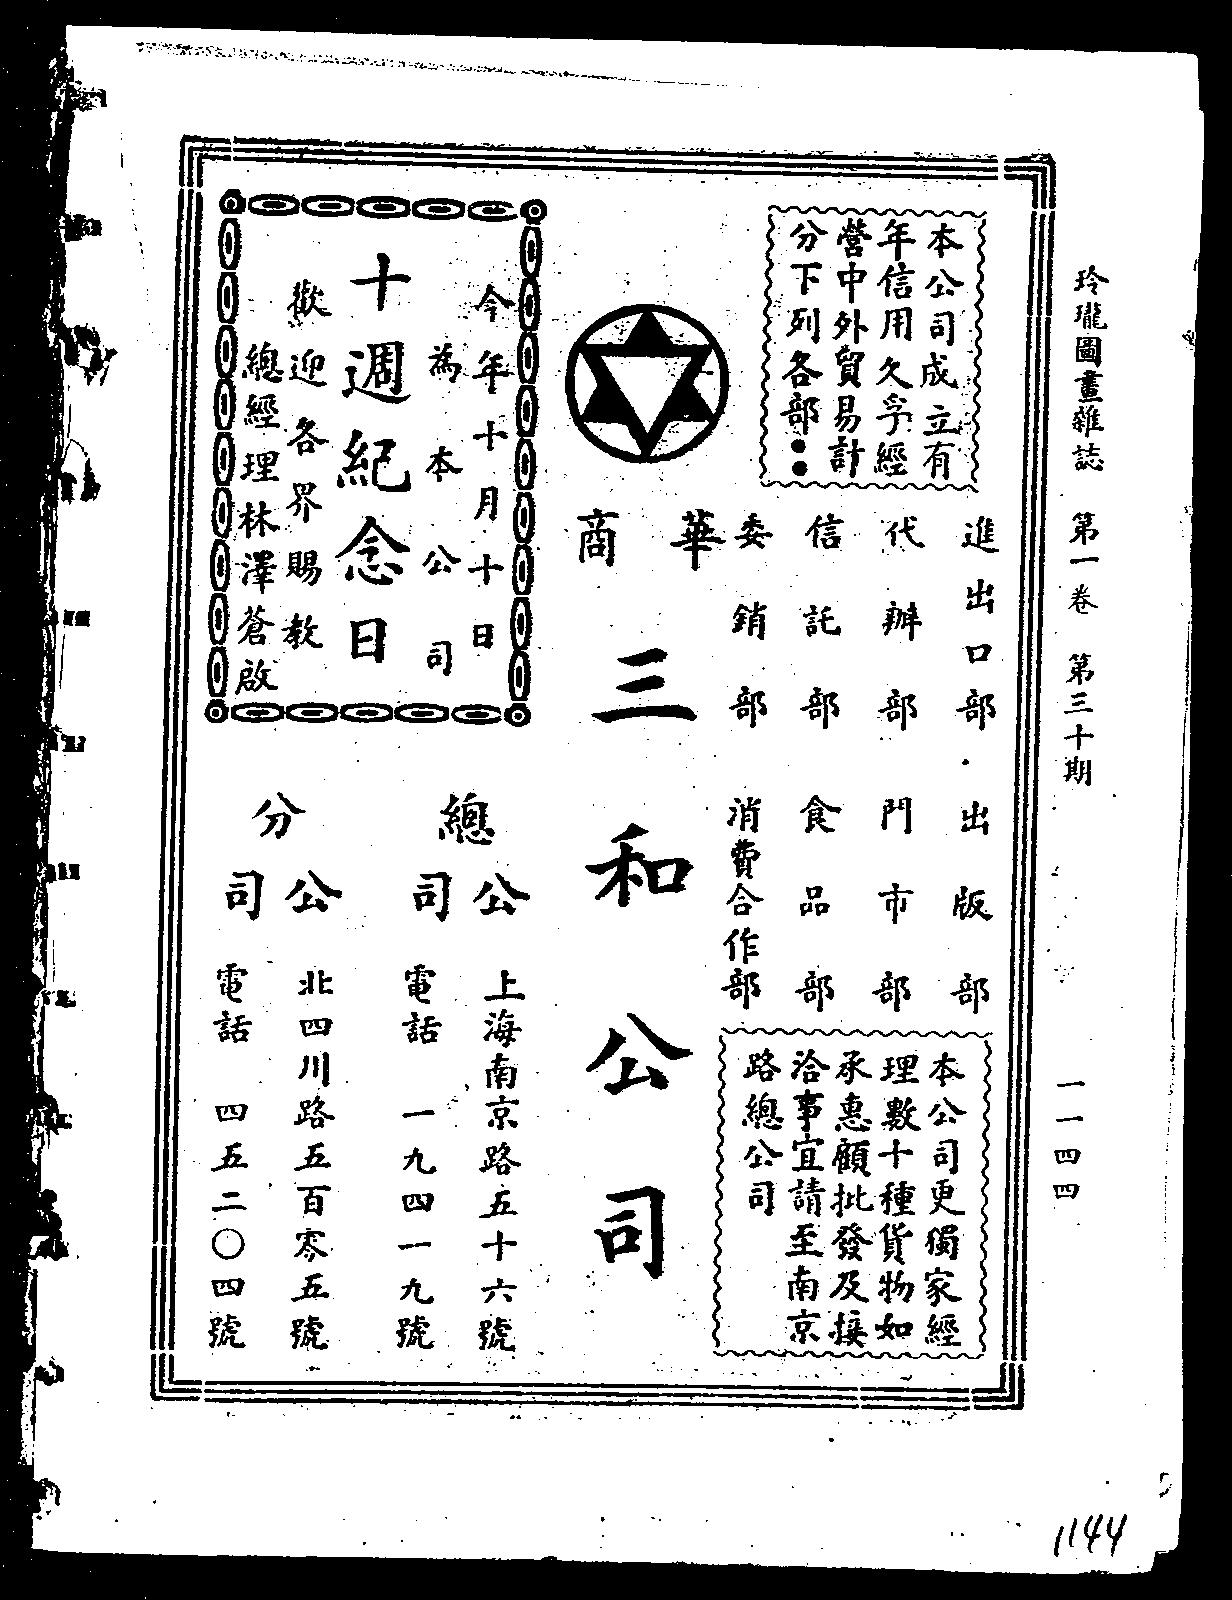 玲瓏圖畫雜誌　第一卷　第三十期　一一四四
本公司成立有
年信用久孚經
營中外貿易計
分下列各部：
進出口部·出版部
代辦部　門市部
信託部　食品部
委銷部　消費合作部
本公司更獨家經
理數十種貨物如
承惠顧批發及接
洽事宜請至南京
路總公司
華商
三和公司
今年十月十日
為本公司
十週紀念日
歡迎各界賜教
總經理林澤蒼啟
總公司
上海南京路五十六號
電話　一九四一九號
分公司
北四川路五百零五號
電話　四五二〇四號
1144